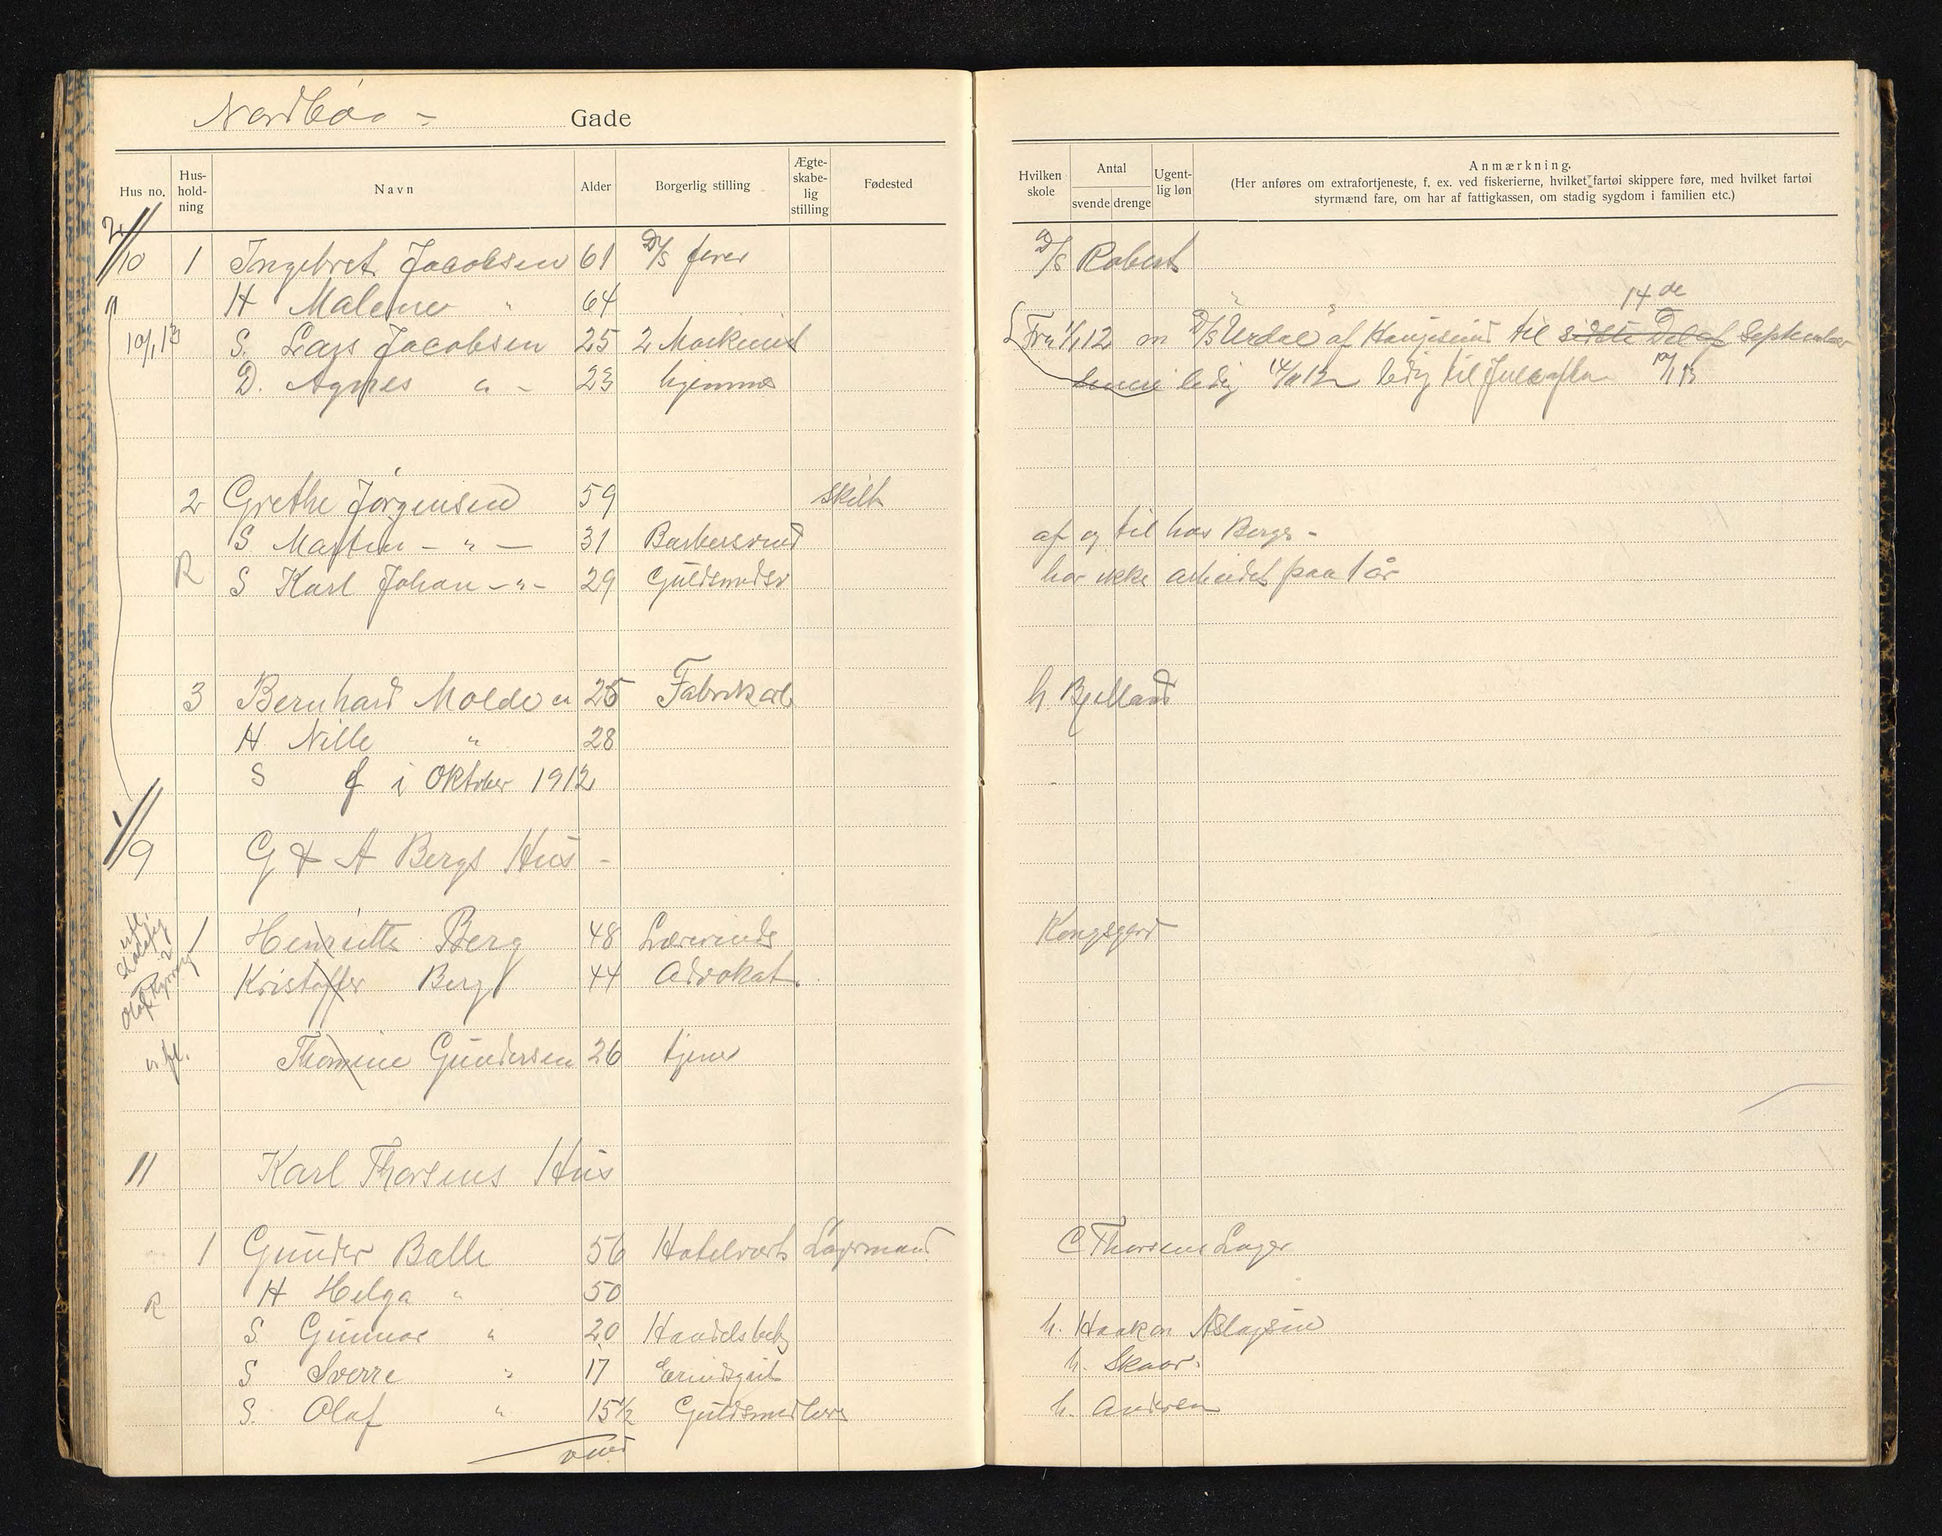 Nordbø - Gade
Hus no. Hus-hold-ning Navn Alder Borgerlig stilling Ægte-skabe-lig stilling Fødested Hvilken skole Antal svende drenge Ugent-lig løn Anmærkning.
(Her anføres om extrafortjeneste, f. ex. ved fiskerierne, hvilket fartøi skippere føre, med hvilket fartøi
styrmænd fare, om har af fattigkassen, om stadig sygdom i familien etc.)
10 1 Ingebret Jacobsen 61 D/S fører D/S Robert
H Malene " 64 14 de
10/1 13 S. Lars Jacobsen 25 2 Maskinist Fra 1/1 12 om D/S "Urdal" af Haugesund til sidste Del af September
D. Agnes " - 23 hjemme ledig 14/11 12 ledig til Juleaften 10/1 13
2 Grethe Jørgensen 59 skilt
S Martin - " - 31 Barbersvend af og til hos Bergs -
R S Karl Johan - " - 29 Guldsmedsv har ikke arbeidet paa 1 år
3 Bernhard Molde 25 Fabrikarb h. Bjelland
H Nille " 28
S f i Oktober 1912
9 G & A Bergs Hus -
1 Henriette Berg 48 Lærerinde Kongsgård
Kristoffer Berg 44 Advokat.
Thomine Gundersen 26 tjener
11 Karl Thorsens Hus
1 Gunder Balle 56 Hotelvært Lagermand C Thorsens Lager
H Helga " 50
R
S. Gunnar " 20 Handelsbetj h. Haakon Aslagsen
S Sverre " 17 Erindsgut h. Skaar.
S. Olaf " 15 1/2 Guldsmedlære h. Andersen
vend